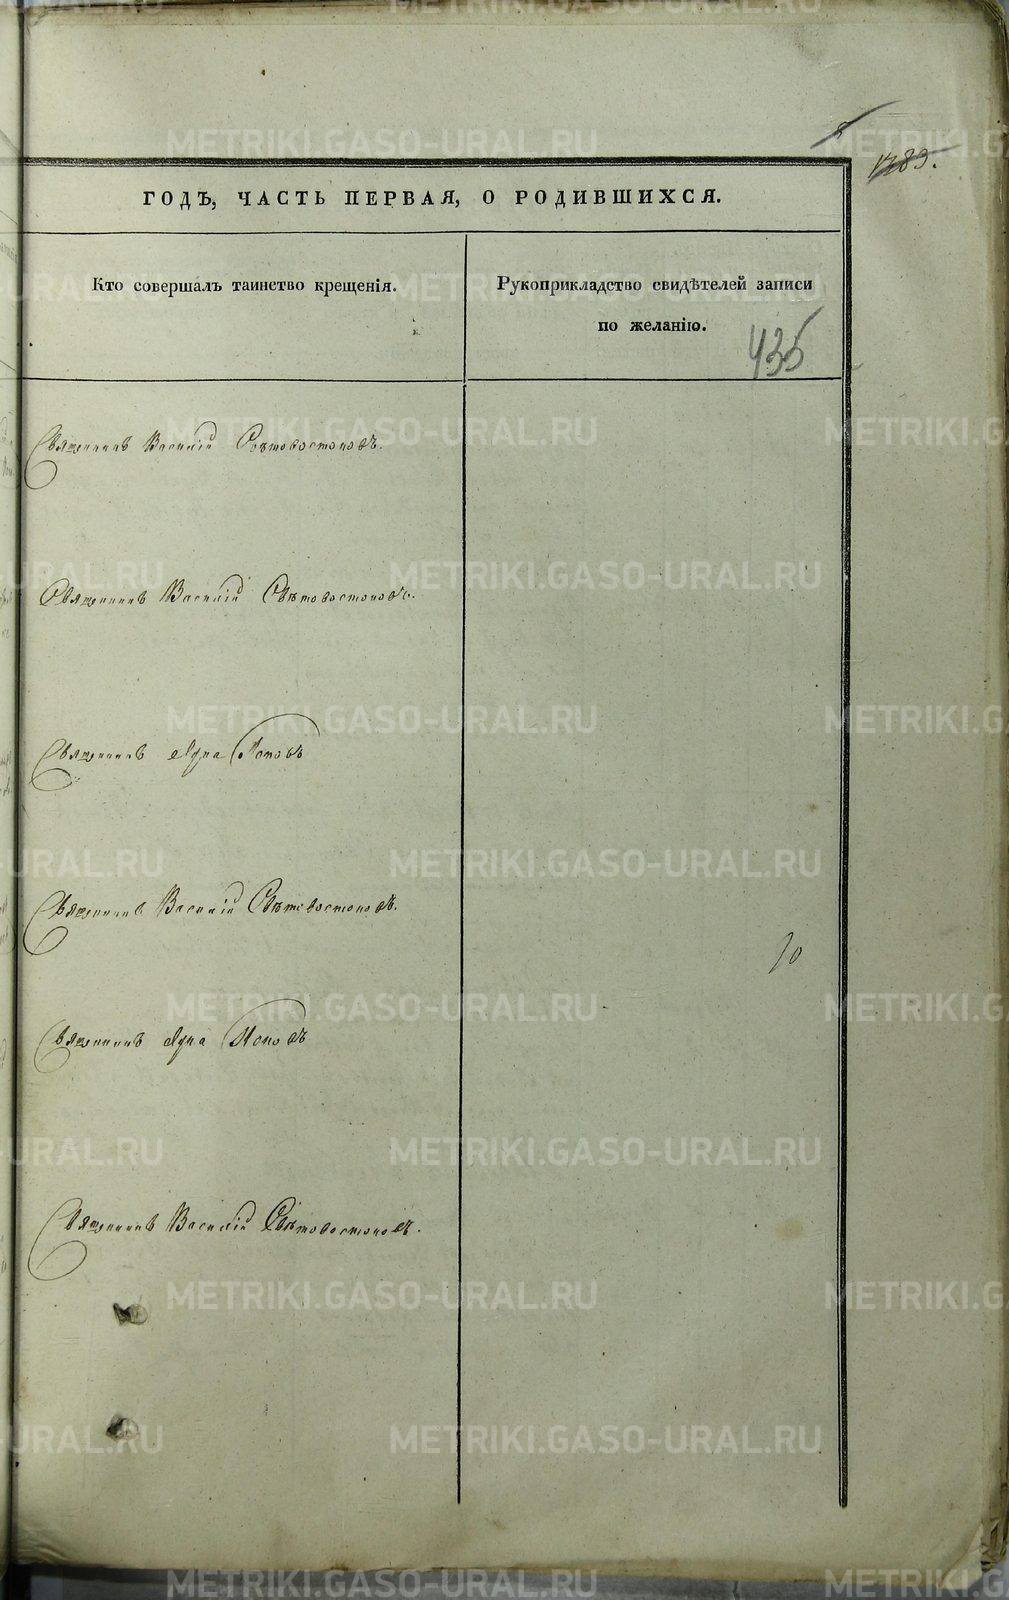 1789.
ГОДЪ, ЧАСТЬ ПЕРВАЯ, О РОДИВШИХСЯ.
Кто совершалъ таинство крещенія.
Рукоприкладство свидѣтелей записи
по желанію.
435
Священникъ Василій Свѣтовостоковъ.
Священникъ Василій Свѣтовостоковъ.
Священникъ Лука Поповъ
Священникъ Василій Свѣтовостоковъ.
10
Священникъ Лука Поповъ
Священникъ Василій Свѣтовостоковъ.
METRIKI.GASO-URAL.RU